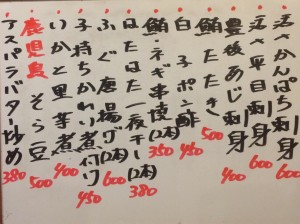 活〆かんぱち刺身 600
活〆さば刺身 600
豊後あじ刺身 400
鮪たたき 500
白子ポン酢 450
鮪・ネギ串焼(2本) 350
はたはた一夜干し(2本) 380
ふぐ唐揚げ(2本)
子持ちかれい煮付け 450
いかと里芋煮 400
鹿児島そら豆 500
アスパラバター炒め 380